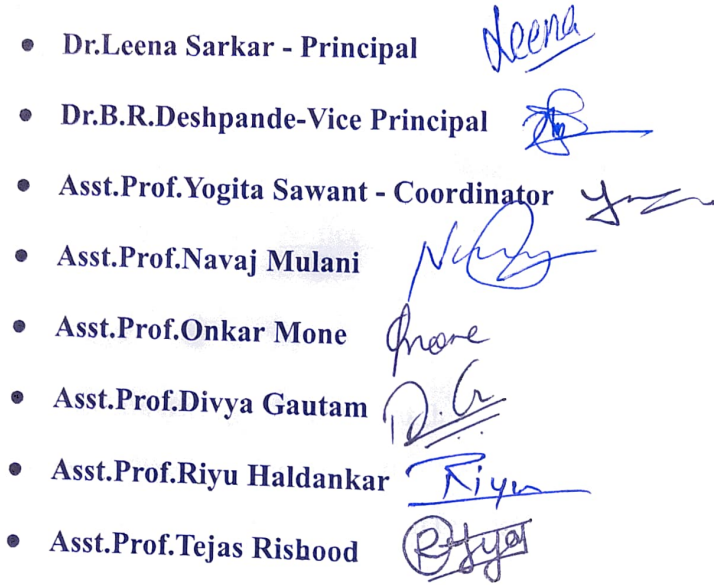 • Dr.Leena Sarkar - Principal Leena
• Dr.B.R.Deshpande-Vice Principal
• Asst.Prof.Yogita Sawant - Coordinator
• Asst.Prof.Navaj Mulani
• Asst.Prof.Onkar Mone
• Asst.Prof.Divya Gautam D.G
• Asst.Prof.Riyu Haldankar Riyu
• Asst.Prof.Tejas Rishood